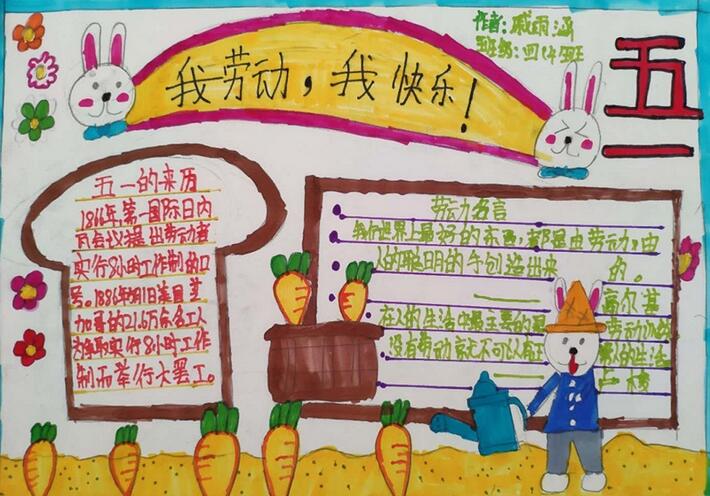 我劳动，我快乐！
作者：戚雨涵
班级：四(4)班
五一
五一的来历
1866年,第一国际日内
瓦会议提出劳动者
实行8小时工作制的口
号。1886年5月1日美国芝
加哥的21.6万余名工人
为争取实行8小时工作
制而举行大罢工。
劳动名言
我们世界上最好的东西,都是由劳动,由
人的聪明的手创造出来的。
——高尔基
在人的生活中最主要的是劳动训练
没有劳动就不可以有正的生活